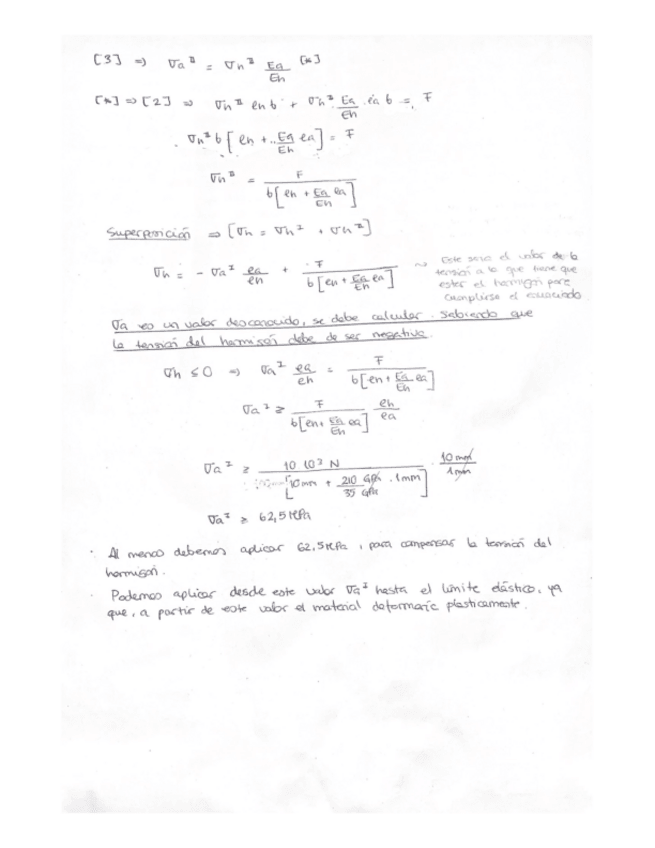 [3] ⇒ σa^II = σh^II Ea/Eh [*]
[*] ⇒ [2] ⇒ σh^II eh b + σh^II Ea/Eh · ea b = F
σh^II b [ eh + Ea/Eh ea ] = F
σh^II = F / b[eh + Ea/Eh ea]
Superposición ⇒ [σh = σh^I + σh^II]
σh = - σa^I ea/eh + F / b[eh + Ea/Eh ea] ~ Este sera el valor de la
tensión a la que tiene que
estar el hormigón para
cumplirse el enunciado
σa es un valor desconocido, se debe calcular. Sabiendo que
la tensión del hormigón debe de ser negativa.
σh ≤ 0 ⇒ σa^I ea/eh = F / b[eh + Ea/Eh ea]
σa^I ≥ F / b[eh + Ea/Eh ea] eh/ea
σa^I ≥ 10 10^3 N / [10mm + 210 GPa/35 GPa · 1mm] · 10 mm/1 mm
σa^I ≥ 62,5 MPa
· Al menos debemos aplicar 62,5 MPa, para compensar la tensión del
hormigón.
· Podemos aplicar desde este valor σa^I hasta el límite elástico, ya
que, a partir de este valor el material deformaría plásticamente.